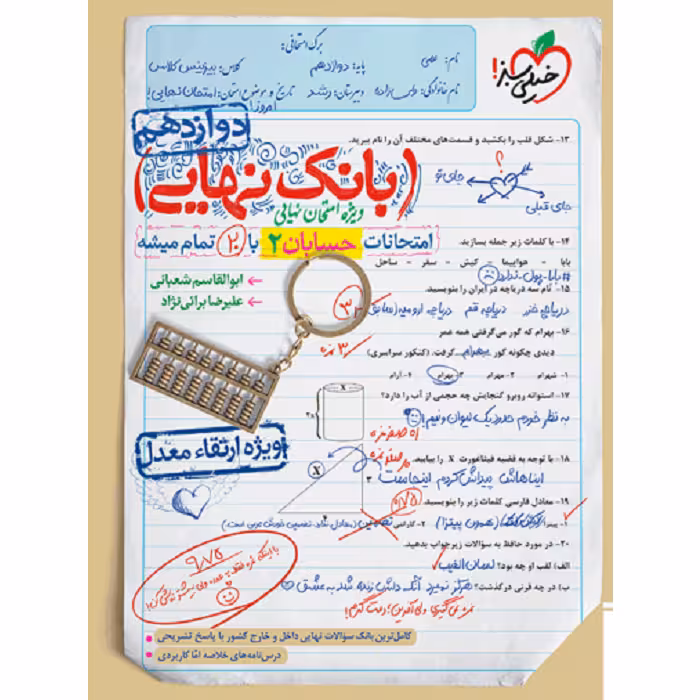 برگ امتحانی:
نام:
پایه: دوازدهم
کلاس: بیزینس کلاس
نام خانوادگی:
دبیرستان: رشد
تاریخ و موضوع امتحان: امتحان نهایی!
امروز!
خیلی سبز!
دوازدهم
(بانک نهایی)
ویژه امتحان نهایی
امتحانات حسابان ۲ با ۲۰ تمام میشه
ابوالقاسم شعبانی
علیرضا براتی‌نژاد
ویژه ارتقاء معدل
۱۳- شکل قلب را بکشید و قسمت‌های مختلف آن را نام ببرید.
؟
جای تو
جای قبلی
۱۴- با کلمات زیر جمله بسازید.
بابا - هواپیما - کیش - سفر - ساحل
#بابا_پول_ندارد
۱۵- نام سه دریاچه در ایران را بنویسید.
دریاچه خزر دریاچه قم دریاچه ارومیه
۳
۱۶- بهرام که گور می‌گرفتی همه عمر
دیدی چگونه گور بهرام گرفت. (کنکور سراسری)
۳ نمره
۱- شهرام ۲- مهرام ۳- بهرام ۴- آرام
۱۷- استوانه روبرو گنجایش چه حجمی از آب را دارد؟
X
۲x
به نظر خودم حدود یک لیوان و نیم!
۱۸- با توجه به قضیه فیثاغورث X را بیابید.
X
۳
۴
ایناهاش پیداش کردم اینجاست
۱۹- معادل فارسی کلمات زیر را بنویسید.
۰/۷۵
۱- پیتزا
۲- کاراتی
۲۰- در مورد حافظ به سؤالات زیر جواب بدهید.
الف) لقب او چه بود؟ لسان الغیب
ب) در چه قرنی درگذشت؟ هرگز نمیرد آنکه دلش زنده شد به عشق
نمره نمی‌گیری ولی آفرین؛ رحمت کردم!
۹/۷۵
کامل‌ترین بانک سؤالات نهایی داخل و خارج کشور با پاسخ تشریحی
درس‌نامه‌های خلاصه امّا کاربردی